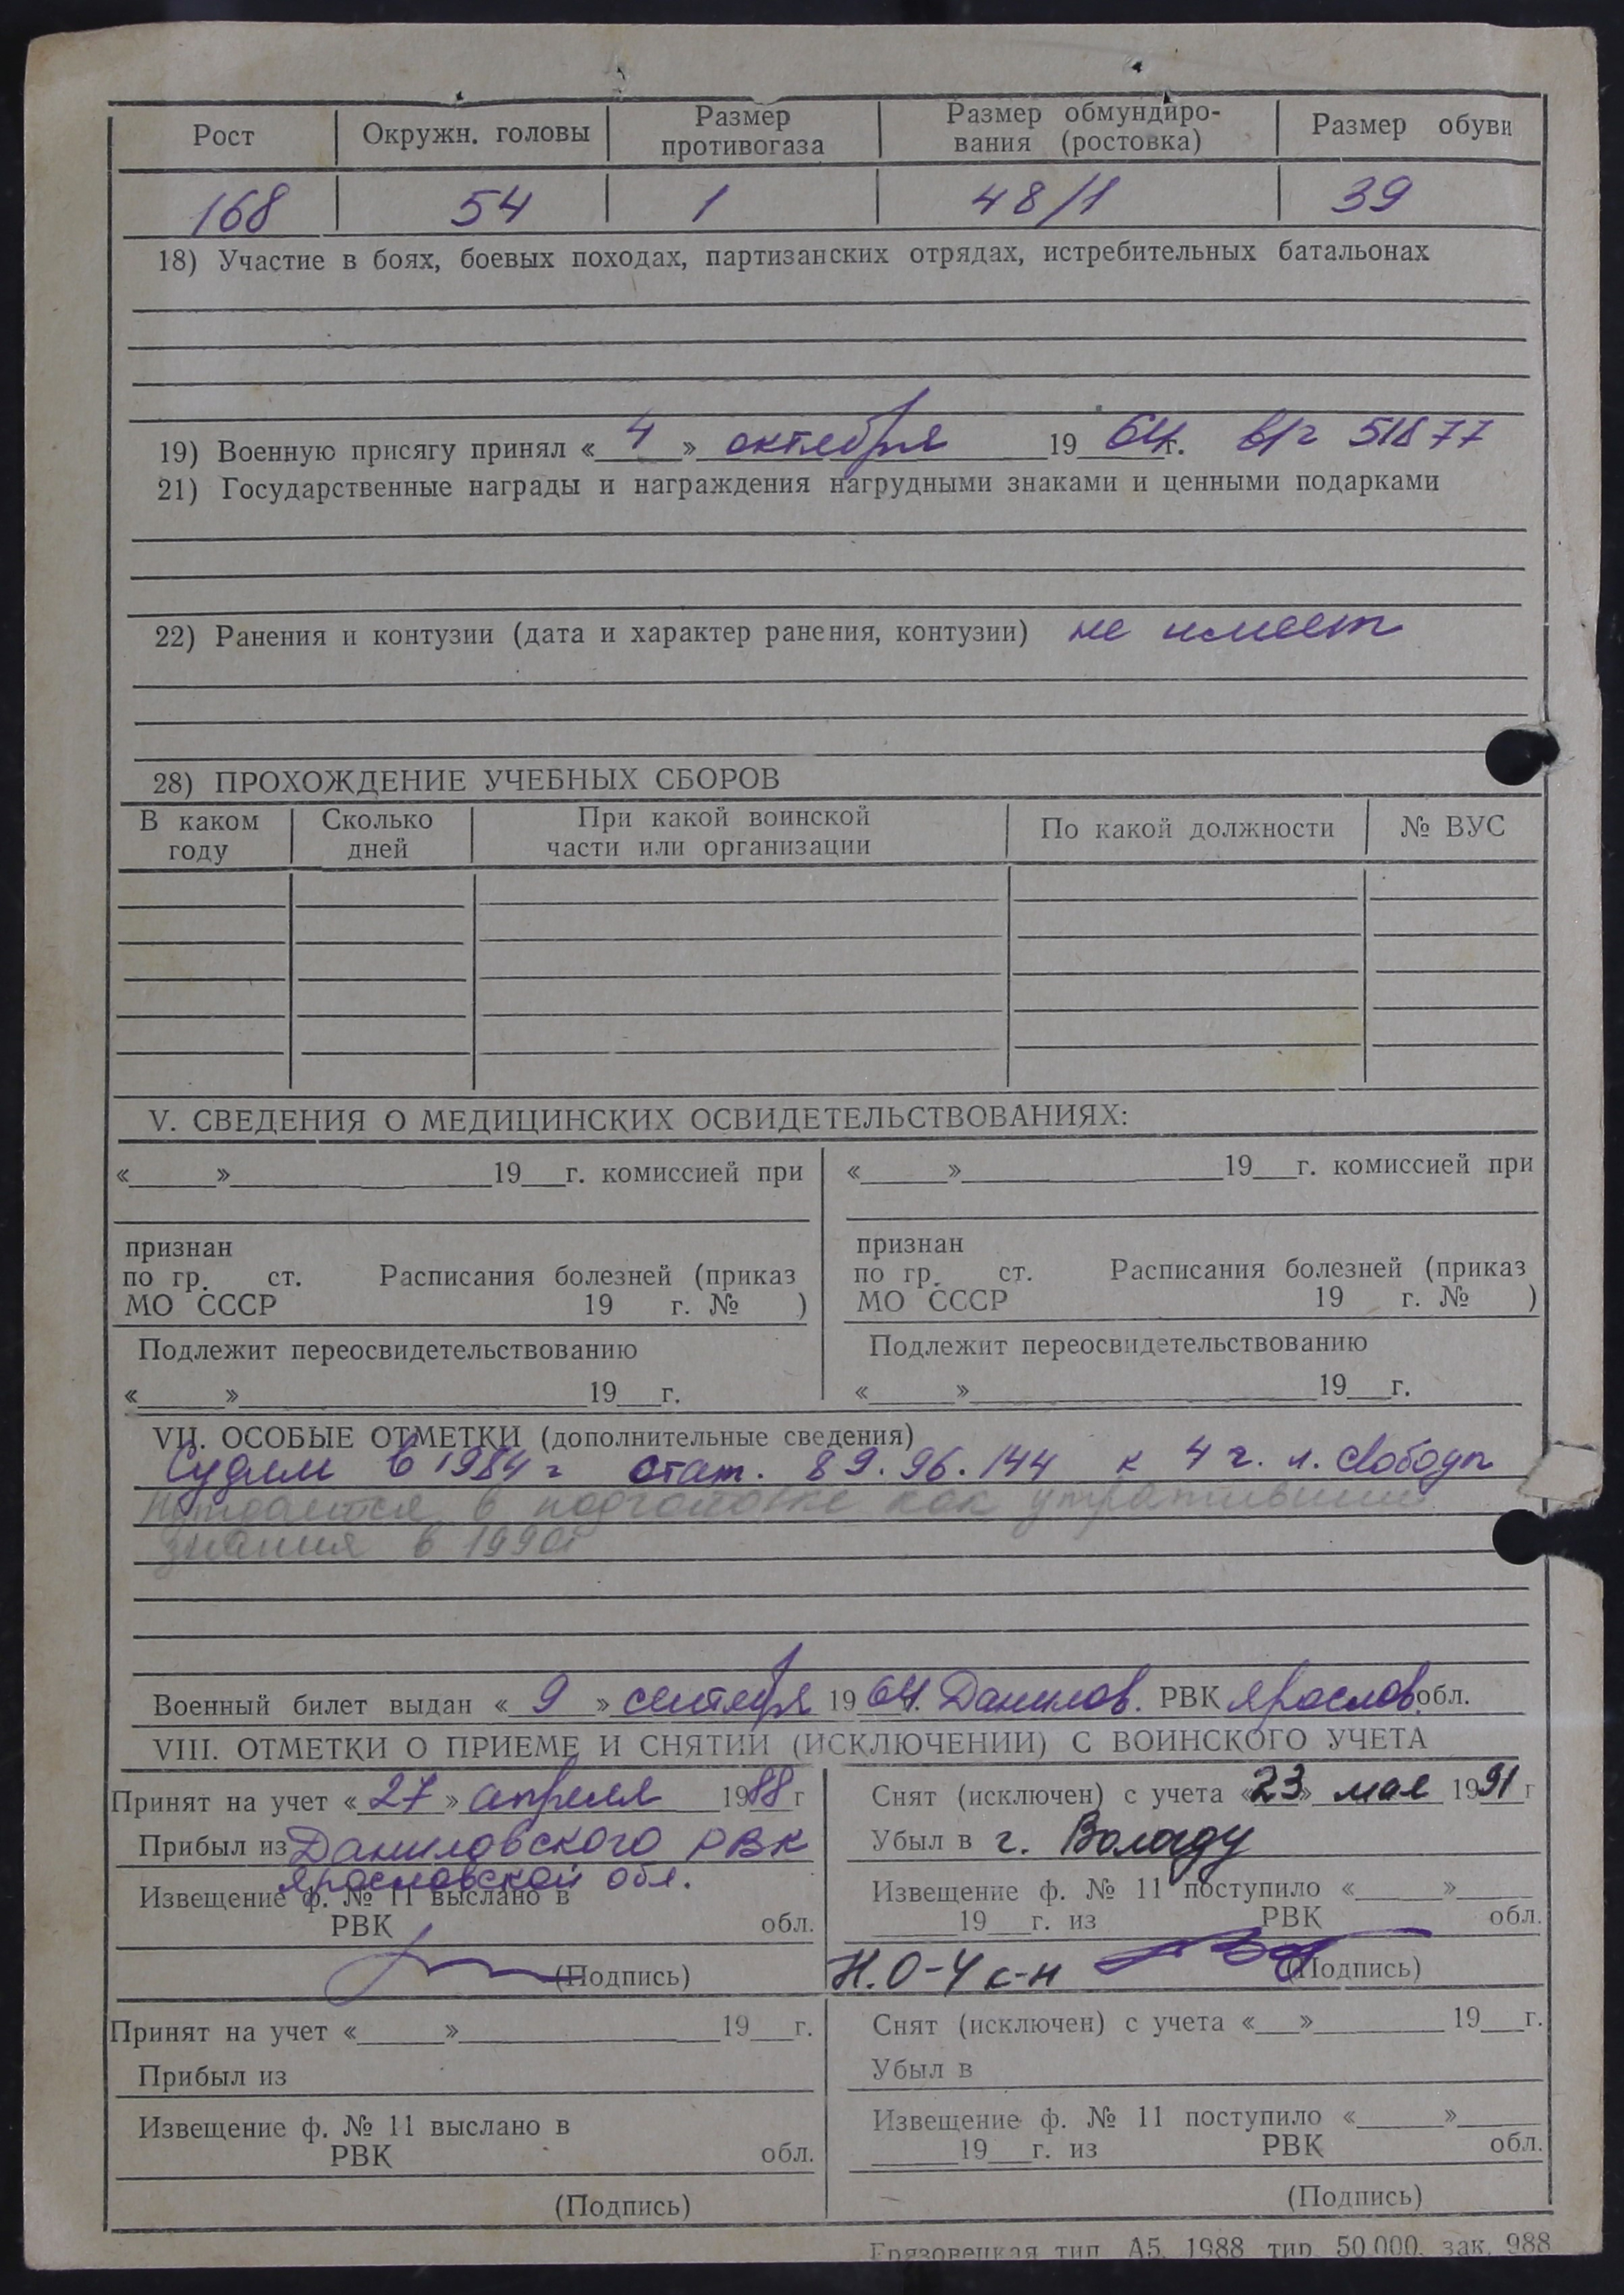 Рост Окружн. головы Размер противогаза Размер обмундиро- вания (ростовка) Размер обуви
168 54 1 48/1 39
18) Участие в боях, боевых походах, партизанских отрядах, истребительных батальонах
19) Военную присягу принял « 4 » октября 19 64 г. в/ч 51877
21) Государственные награды и награждения нагрудными знаками и ценными подарками
22) Ранения и контузии (дата и характер ранения, контузии) не имеет
28) ПРОХОЖДЕНИЕ УЧЕБНЫХ СБОРОВ
В каком году Сколько дней При какой воинской части или организации По какой должности № ВУС
V. СВЕДЕНИЯ О МЕДИЦИНСКИХ ОСВИДЕТЕЛЬСТВОВАНИЯХ:
«____»____________19__г. комиссией при «____»____________19__г. комиссией при
признан признан
по гр. ст. Расписания болезней (приказ по гр. ст. Расписания болезней (приказ
МО СССР 19 г. № ) МО СССР 19 г. № )
Подлежит переосвидетельствованию Подлежит переосвидетельствованию
«____»________________19__г. «____»________________19__г.
VII. ОСОБЫЕ ОТМЕТКИ (дополнительные сведения)
Судим в 1984 г стат. 89. 96. 144 к 4 г. л. свободы
Нуждается в подготовке как утративший
знания в 1990г
Военный билет выдан « 9 » сентября 19 64. Данилов. РВК Ярослов. обл.
VIII. ОТМЕТКИ О ПРИЕМЕ И СНЯТИИ (ИСКЛЮЧЕНИИ) С ВОИНСКОГО УЧЕТА
Принят на учет « 27 » апреля 1988 г Снят (исключен) с учета «23» мая 1991 г
Прибыл из Даниловского РВК Убыл в г. Вологду
Ярославской обл.
Извещение ф. № 11 выслано в Извещение ф. № 11 поступило «____»____
РВК обл. ____19__г. из РВК обл.
(Подпись) Н.О-4 с-н (Подпись)
Принят на учет «____»____________19__г. Снят (исключен) с учета «__»______ 19__г.
Прибыл из Убыл в
Извещение ф. № 11 выслано в Извещение ф. № 11 поступило «____»____
РВК обл. ____19__г. из РВК обл.
(Подпись) (Подпись)
Грязовецкая тип. А5. 1988 тир. 50.000. зак. 988